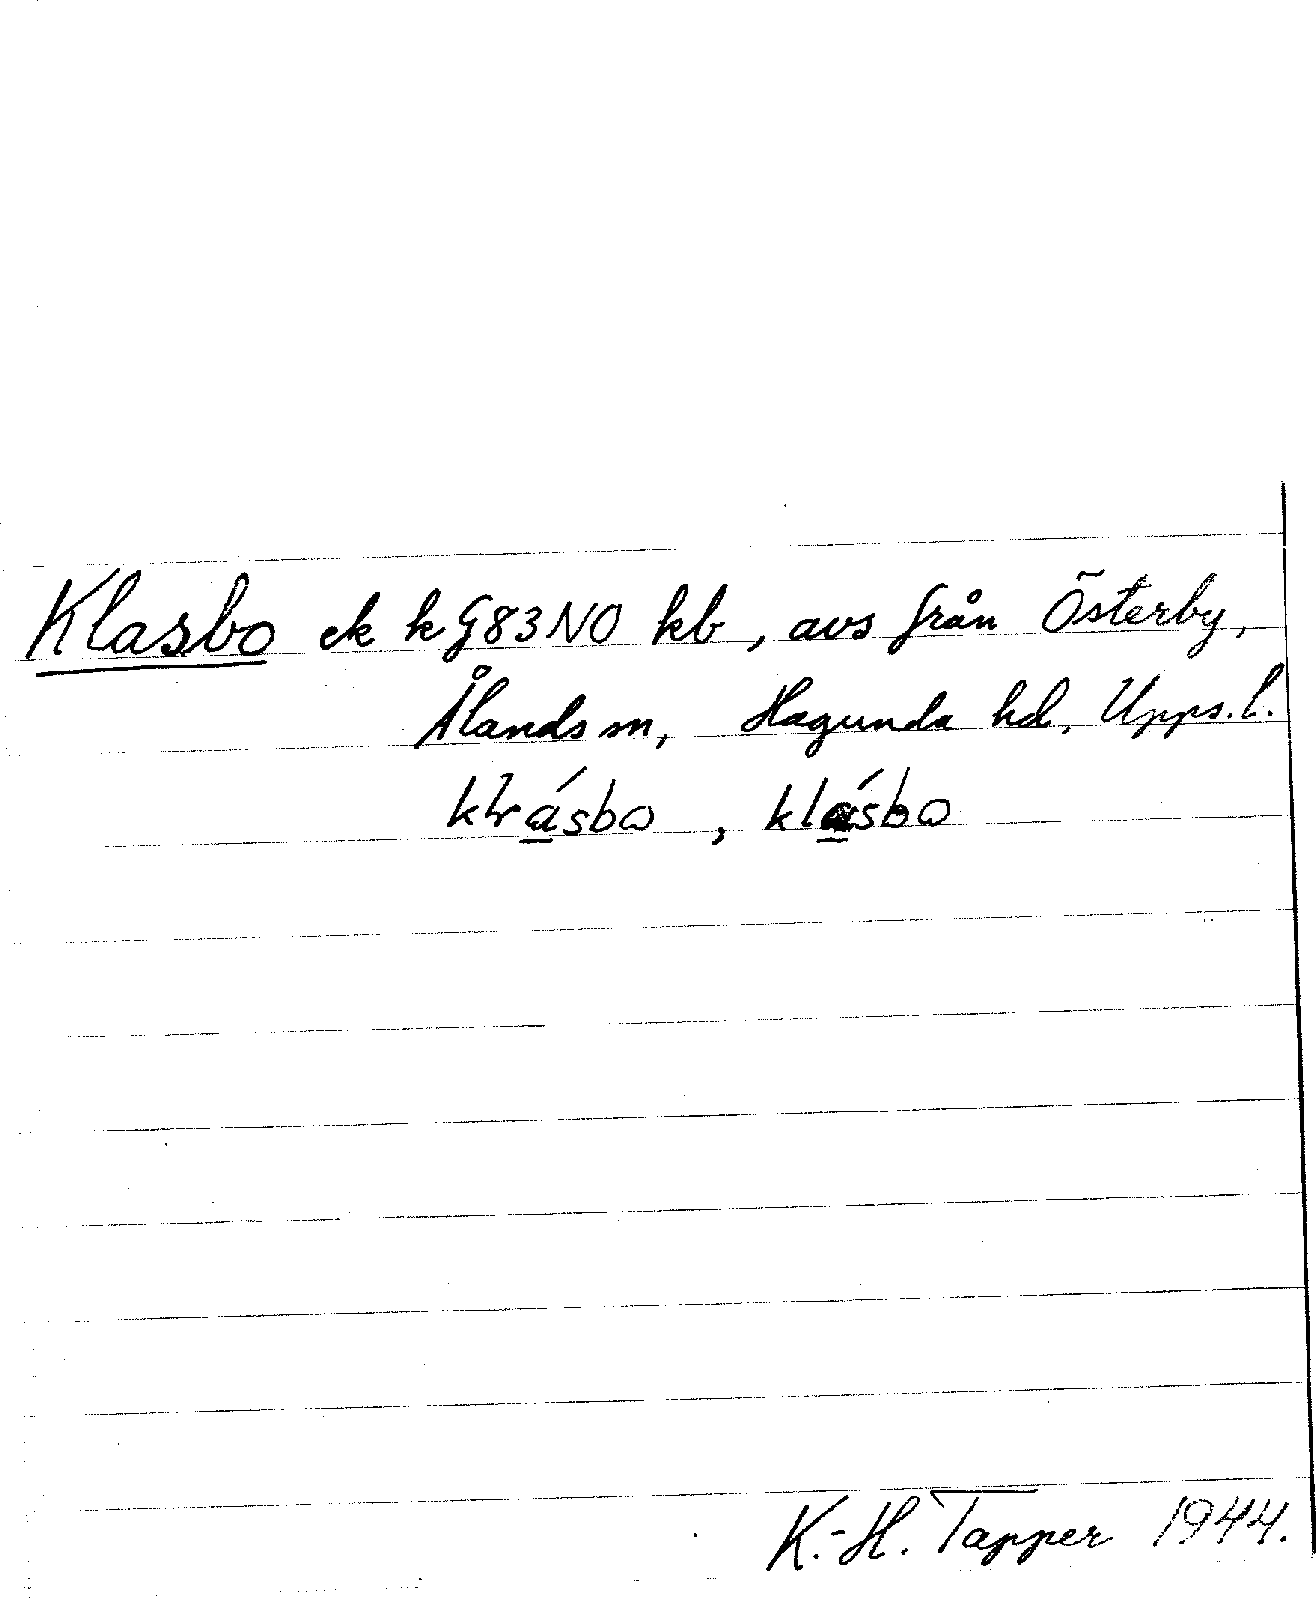 Klasbo ek k G83NO kb, avs från Österby,
Ålands sn, Hagunda hd, Upps.l.
klrásbo, klásbo
K.-H. Tapper 1944.